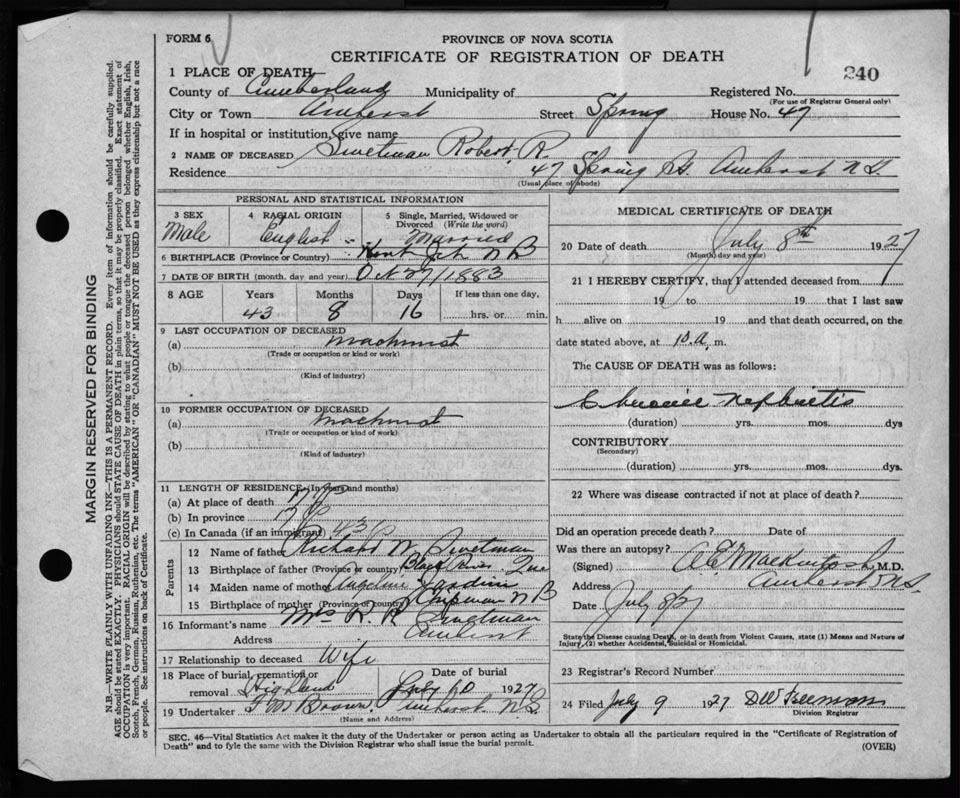 FORM 6
PROVINCE OF NOVA SCOTIA
CERTIFICATE OF REGISTRATION OF DEATH
240
1 PLACE OF DEATH
County of Cumberland Municipality of Registered No.
(For use of Registrar General only)
City or Town Amherst Street Spring House No. 47
If in hospital or institution, give name
2 NAME OF DECEASED Swetman Robert R.
Residence 47 Spring St. Amherst N.S.
(Usual place of abode)
PERSONAL AND STATISTICAL INFORMATION
3 SEX Male
4 RACIAL ORIGIN English
5 Single, Married, Widowed or Divorced (Write the word) Married
6 BIRTHPLACE (Province or Country) Kent Jct N B
7 DATE OF BIRTH (month, day and year) Oct 27/1883
8 AGE Years Months Days If less than one day,
43 8 16 hrs. or min.
9 LAST OCCUPATION OF DECEASED
(a) Machinist
(Trade or occupation or kind or work)
(b)
(Kind of industry)
10 FORMER OCCUPATION OF DECEASED
(a) Machinist
(Trade or occupation or kind of work)
(b)
(Kind of industry)
11 LENGTH OF RESIDENCE (In years and months)
(a) At place of death 17
(b) In province 17
(c) In Canada (if an immigrant) 43
Parents
12 Name of father Richard W. Swetman
13 Birthplace of father (Province or country) Black River Que
14 Maiden name of mother
15 Birthplace of mother (Province or country) Chipman N B
16 Informant's name Mrs R. R. Swetman
Address Amherst
17 Relationship to deceased Wife
18 Place of burial, cremation or removal Highland
Date of burial July 10 1927
19 Undertaker Brown Amherst N.S.
(Name and Address)
MEDICAL CERTIFICATE OF DEATH
20 Date of death July 8th 1927
(Month) day and year)
21 I HEREBY CERTIFY, that I attended deceased from
19 to 19 that I last saw
h alive on 19 and that death occurred, on the
date stated above, at 10.a. m.
The CAUSE OF DEATH was as follows:
Chronic Nephritis
(duration) yrs. mos. dys
CONTRIBUTORY
(Secondary)
(duration) yrs. mos. ds.
22 Where was disease contracted if not at place of death?
Did an operation precede death? Date of
Was there an autopsy?
(Signed) A. E. Mackintosh, M.D.
Address Amherst N.S.
Date July 8/27
State the Disease causing Death, or in death from Violent Causes, state (1) Means and Nature of
Injury, (2) whether Accidental, Suicidal or Homicidal.
23 Registrar's Record Number
24 Filed July 9 1927
Division Registrar
SEC. 46—Vital Statistics Act makes it the duty of the Undertaker or person acting as Undertaker to obtain all the particulars required in the "Certificate of Registration of
Death" and to fyle the same with the Division Registrar who shall issue the burial permit.
(OVER)
MARGIN RESERVED FOR BINDING
N.B.—WRITE PLAINLY WITH UNFADING INK—THIS IS A PERMANENT RECORD. Every item of information should be carefully supplied.
AGE should be stated EXACTLY. PHYSICIANS should STATE CAUSE OF DEATH in plain terms, so that it may be properly classified. Exact statement of
OCCUPATION is very important. RACIAL ORIGIN will be described by stating to what people or tongue the deceased person belonged whether English, Irish,
Scotch, French, German, Russian, Ruthenian, etc. The terms "AMERICAN" OR "CANADIAN" MUST NOT BE USED as they express citizenship but not a race
or people. See instructions on back of Certificate.